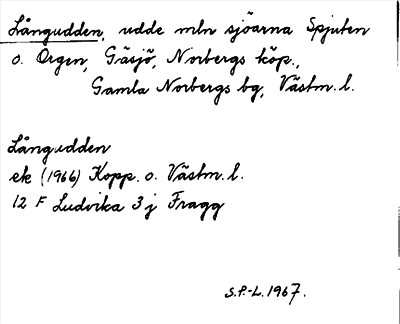 Långudden, udde mln sjöarna Spjuten
o. Orgen, Gäsjö, Norbergs köp.,
Gamla Norbergs bg, Västm. l.
Långudden
ek (1966) Kopp. o. Västm. l.
12 F Ludvika 3 j Fragg
S.P.-L. 1967.